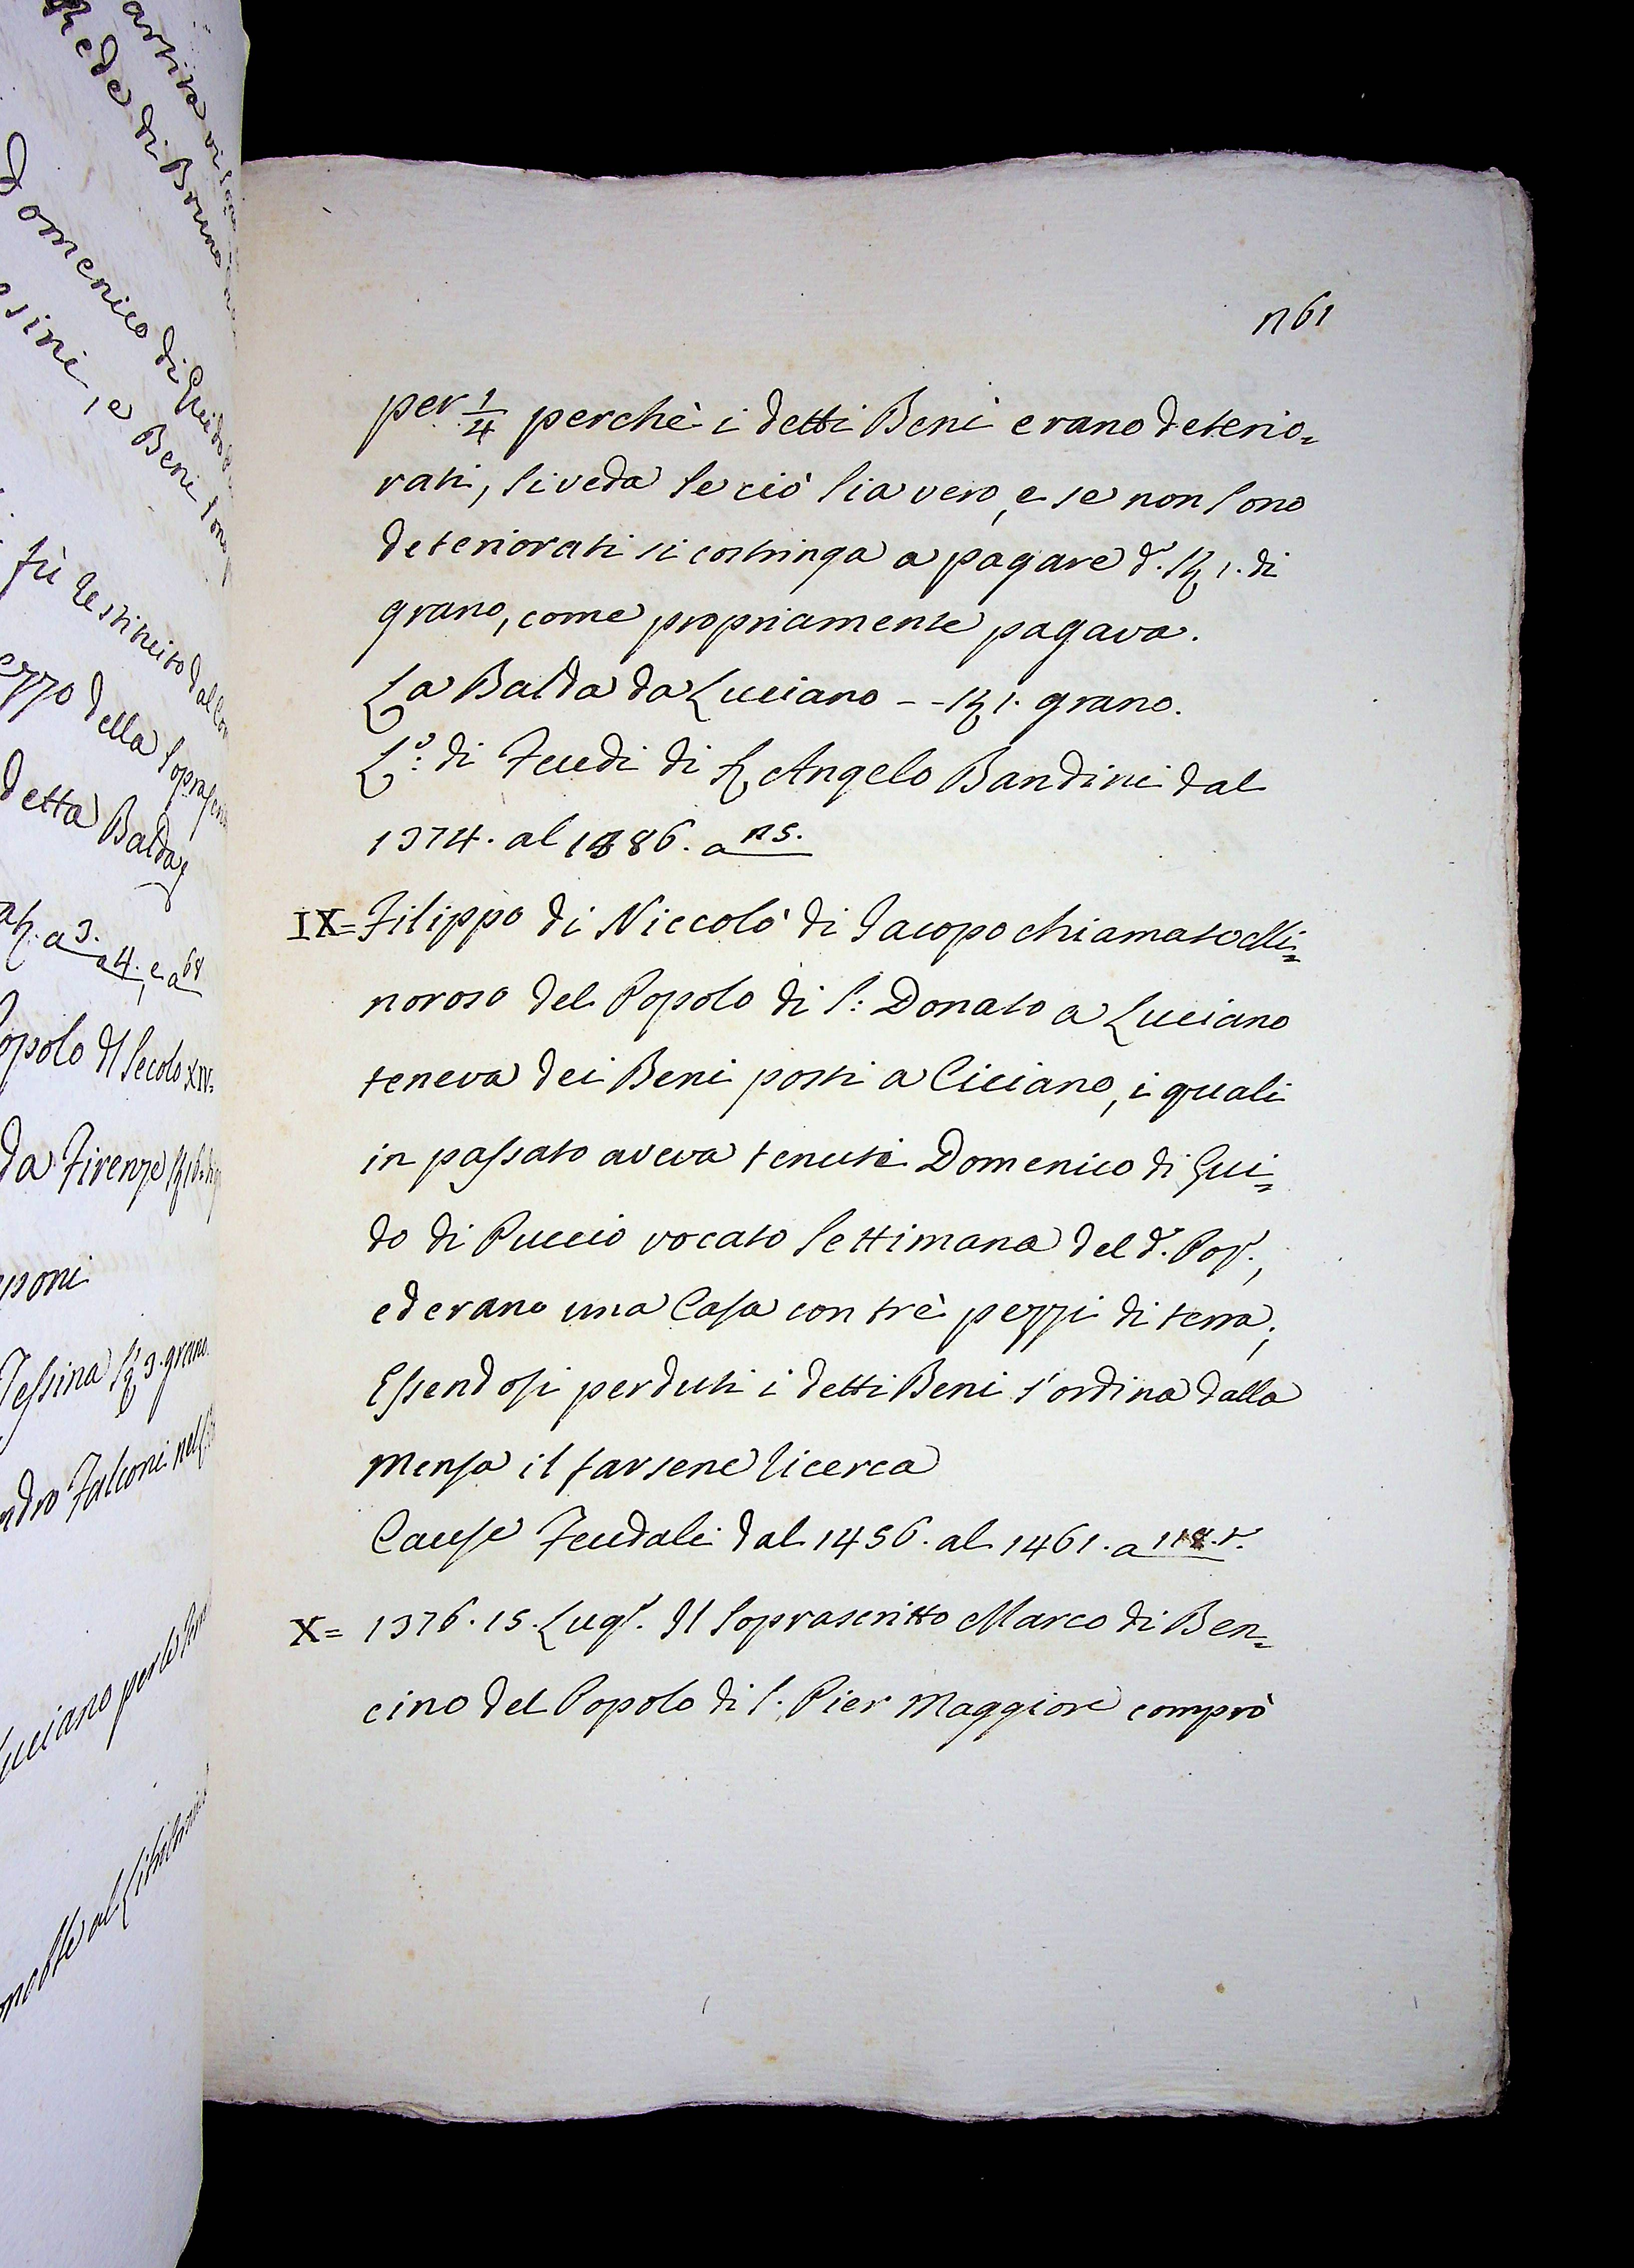 artita vi
hede di Bruno
Domenico di Guido
sini, e Beni sono
fù restituito dal
ezzo della soprascr
detta Balda
a 3. a 4. e a 68
opolo Il Secolo XIV=
da Firenze
sponi
Tessina St 3. grano
ndro Falconi nel
uciano per le
1161
per 1/4 perchè i detti Beni erano deterio=
rati, si veda se ciò sia vero, e se non sono
deteriorati si costringa a pagare d.° St 1. di
grano, come propriamente pagava.
La Balda da Luciano -- St 1. grano.
L.° di Feudi di Sr Angelo Bandini dal
1374. al 1386. a 115.
IX= Filippo di Niccolò di Jacopo chiamato Mi=
noroso del Popolo di S: Donato a Luciano
teneva dei Beni posti a Ciciano, i quali
in passato aveva tenuti Domenico di Gui=
do di Puccio vocato Settimana del d.° Pop.°,
ed erano una Casa con trè pezzi di terra;
Essendosi perduti i detti Beni s'ordina dalla
Mensa il farsene ricerca
Cause Feudali dal 1456. al 1461. a 118.r.
X= 1376. 15. Lug.° Il Soprascritto Marco di Ben=
cino del Popolo di S. Pier Maggiore comprò